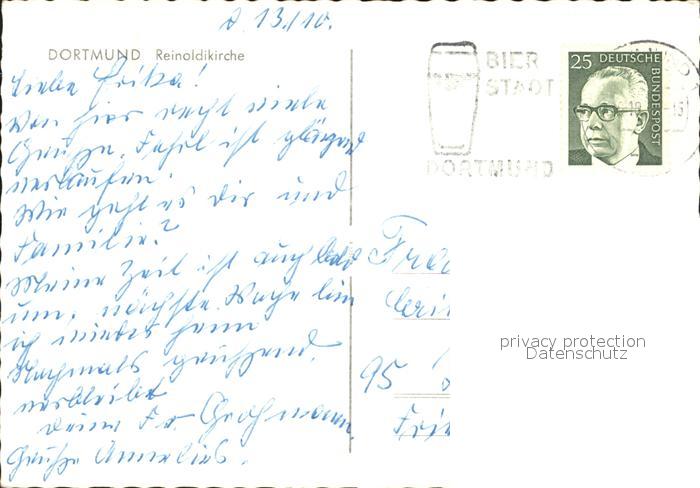 d. 13./10.
DORTMUND Reinoldikirche
Liebe Erika!
Von hier recht viele
Grüße. Fahrt ist glänzend
verlaufen.
Wie geht es dir und
Familie?
Meine Zeit ist auch bald
um, nächste Woche bin
ich wieder
Nochmals grüssend
verbleibt
deine Fr Grohmann
Grüße Annelies.
BIER
STADT
DORTMUND
25 DEUTSCHE
BUNDESPOST
95
privacy protection
Datenschutz